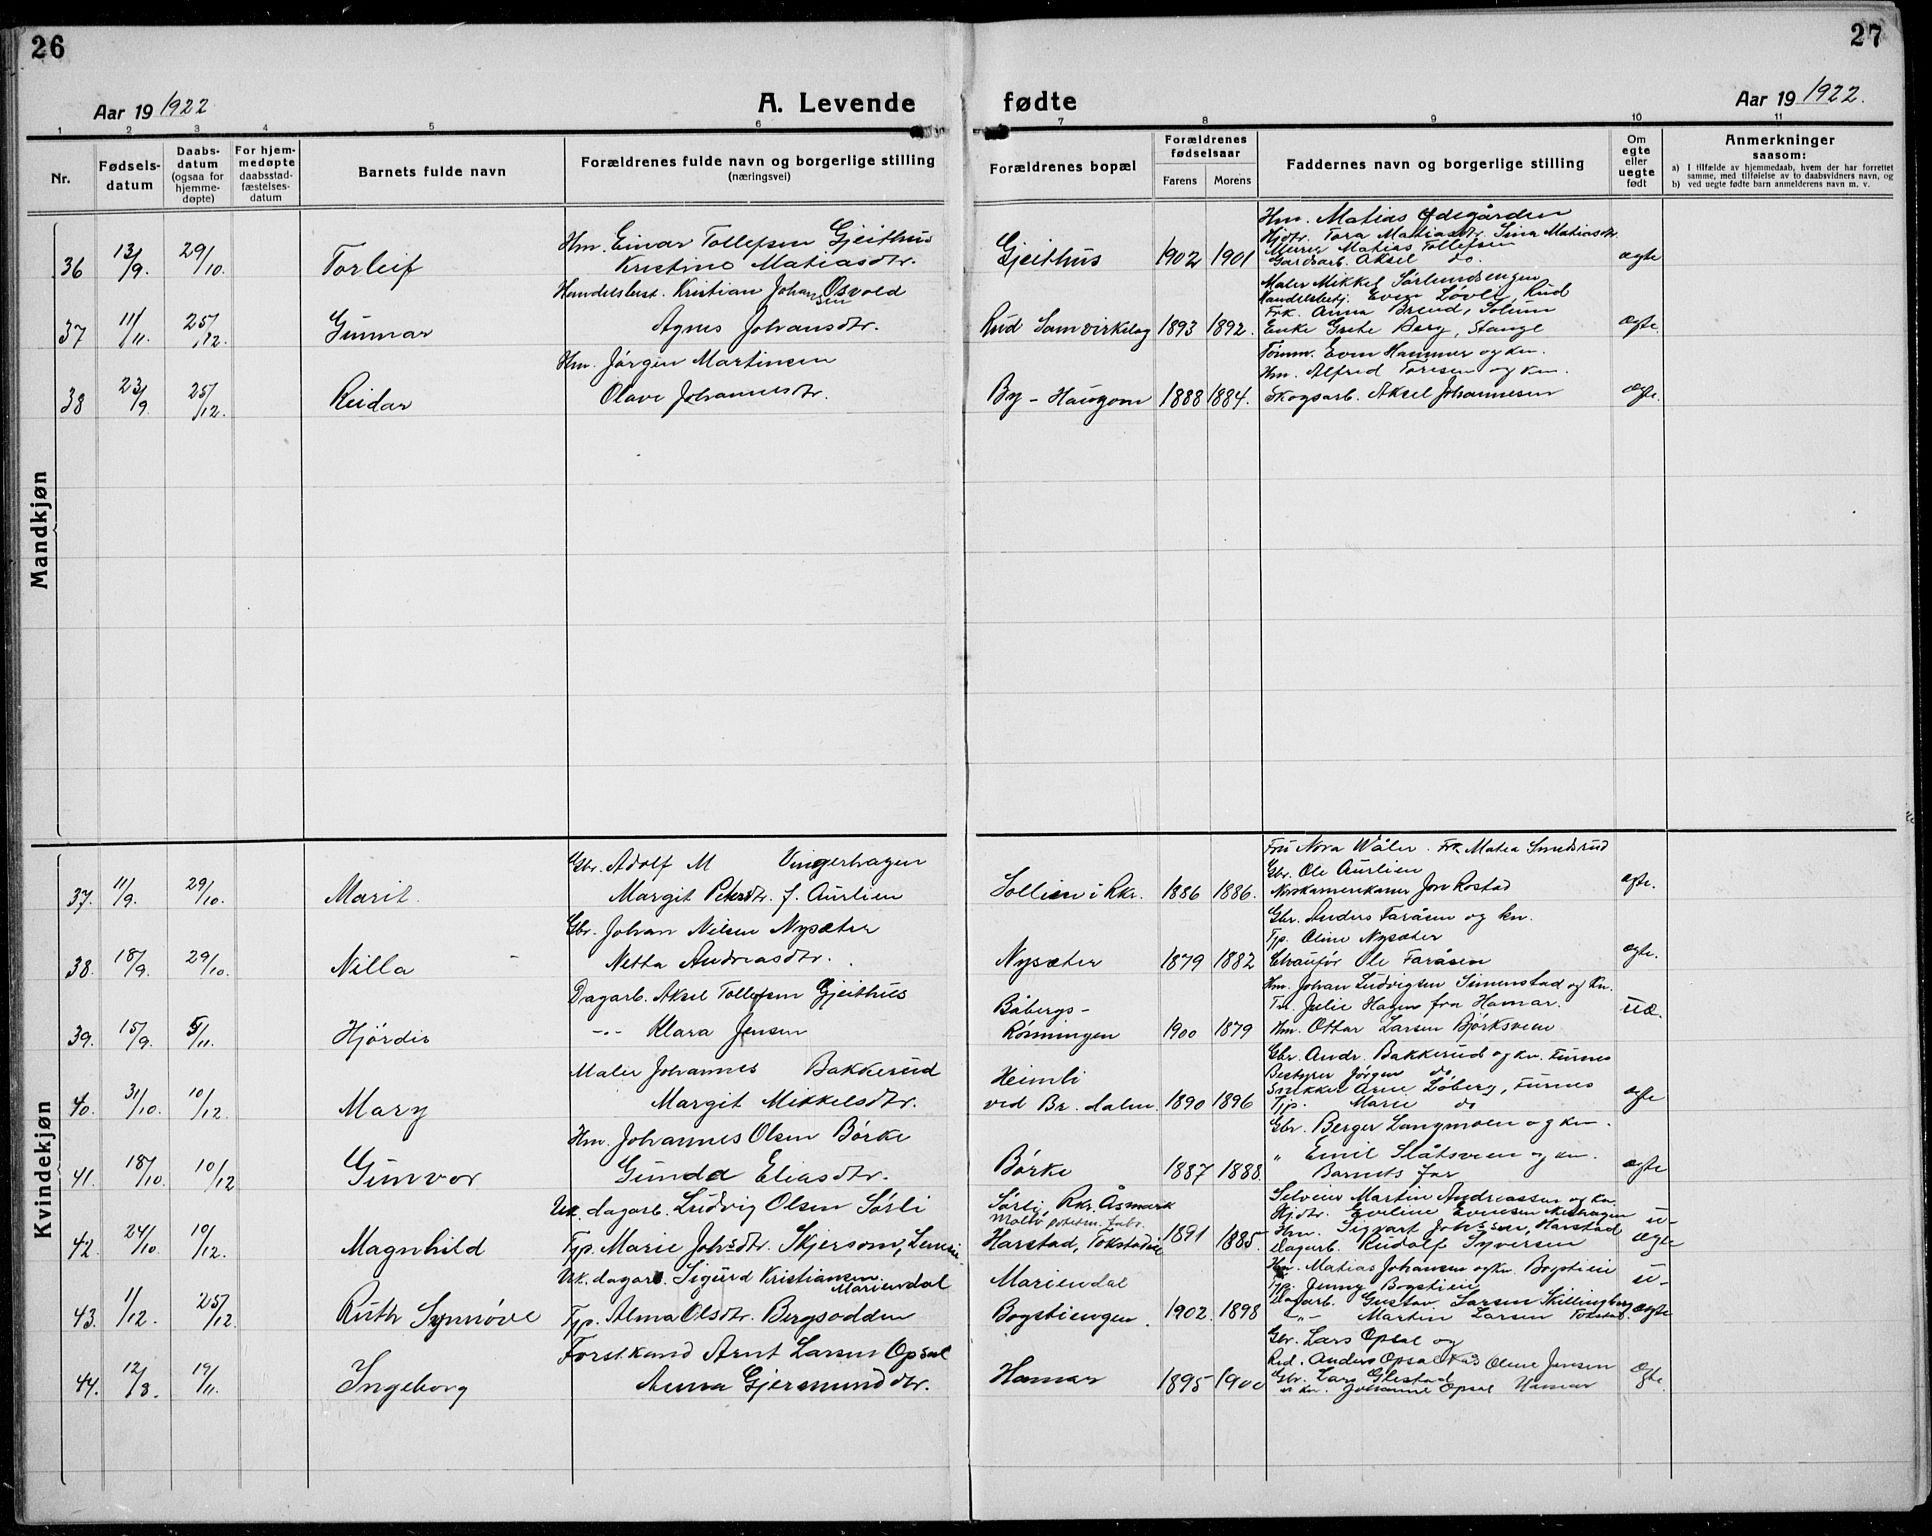 26
27
Aar 19 1922
A. Levende fødte
Aar 19 1922.
1 2 3 4 5 6 7 8 9 10 11
Nr.
Fødsels-datum
Daabs-datum (ogsaa for hjemme-døpte)
For hjem-medøpte daabsstad-fæstelses-datum
Barnets fulde navn
Forældrenes fulde navn og borgerlige stilling (næringsvei)
Forældrenes bopæl
Forældrenes fødselsaar
Farens
Morens
Faddernes navn og borgerlige stilling
Om egte eller uegte født
Anmerkninger saasom:
a) I tilfælde av hjemmedaab, hvem der har forrettet samme, med tilføielse av to daabsvidners navn, og
b) ved uegte fødte barn anmelderens navn m. v.
Mandkjøn
36 13/9. 29/10. Torleif
Hm. Einar Tollefsen Gjeithus
Kristine Matiasdtr.
Gjeithus 1902 1901
Hm. Matias Ødegården
Hjdtr. Tora Matiasdtr. Sina Matiasdtr.
Murer Matias Tollefsen
Gardsarb. Aksel do.
ægte
37 11/11. 25/12. Gunnar
Handelsbest. Kristian Johansen Osvold
Agnes Johansdtr.
Rud Samvirkelag 1893 1892.
Maler Mikkel Sørlundsengen
Handelsbetj. Even Løvli, Rud
Frk. Anna Brend, Solum
Enke Grete Berg, Stange
ægte.
38 23/9 25/12. Reidar
Hm. Jørgen Martinsen
Olave Johannesdtr.
By - Haugom 1888 1884.
Tømm. Even Hammer og kn.
Hm. Alfred Toresen og kn.
Skogsarb. Aksel Johannesen
ægte.
Kvindekjøn
37. 11/9. 29/10. Marit
Gbr. Adolf M Vingerhagen
Margit Petersdtr. f. Aurlien
Sollien i Rkr. 1886 1886.
Fru Nora Wåler. Frk Matea Smedsrud
Gbr. Ole Aurlien
Norskamerikaner Jon Rostad
ægte.
38. 18/9. 29/10. Nilla
Gbr. Johan Nilsen Nysæter
Netta Andreasdtr.
Nysæter 1879 1882
Gbr. Anders Faråsen og kn.
Tjp. Oline Nysæter
Chaufør Ole Faråsen
ægte.
39. 15/9. 5/11. Hjørdis
Dagarb. Aksel Tollefsen Gjeithus
-"- Klara Jensen
Båbergs-
Rønningen 1900 1879
Hm. Johan Ludvigsen Simenstad og kn.
Tnr. Julie Hagen fra Hamar.
Hm. Ottar Larsen Bjørksveen
uæ.
40. 31/10. 10/12. Mary
Maler Johannes Bakkerud
Margit Mikkelsdtr.
Heimli
ved Br. dalen. 1890 1896
Gbr. Andr. Bakkerud og kn. Furnes
Bestyrer Jørgen do
Snekker Arne Løberg, Furnes
Tjp. Marie do
ægte
41. 18/10. 10/12 Gunvor
Hm. Johannes Olsen Børke
Gunda Eliasdtr.
Børke 1887 1888.
Gbr. Berger Langmoen og kn.
" Emil Slåtsveen og kn.
Barnets far
ægte
42. 24/10. 10/12. Magnhild
Uk. dagarb. Ludvig Olsen Sørli
Tjp. Marie Johsdtr. Skjersom,
Sørli, Rkr. Åsmark
Harstad, 1891 1885.
Martin Andreassen og kn.
Hjdtr. Eveline Evensen
Sigvart Johssen, Harstad
Dagarb. Rudolf Syversen
u-
ægte
43. 1/12. 25/12. Ruth Synnøve
Uk. dagarb. Sigurd Kristiansen
Mariendal
Tjp. Alma Olsdtr. Bergsodden
Mariendal
Bogstiengen. 1902. 1898
Hm. Matias Johansen og kn. Bogstien
Tjp. Jenny Bogstien
Dagarb. Gustav Larsen Skillingberg
-"- Martin Larsen
u-
ægte
44. 12/8. 19/11. Ingeborg
Forstkand Arnt Larsen Opsal
Anna Gjermundsdtr.
Hamar 1895 1900
Gbr. Lars Opsal og
Red. Anders Opsal Oline Jensen
Gbr. Lars Glestad
og kn. Johanne Opsal Hamar
ægte.